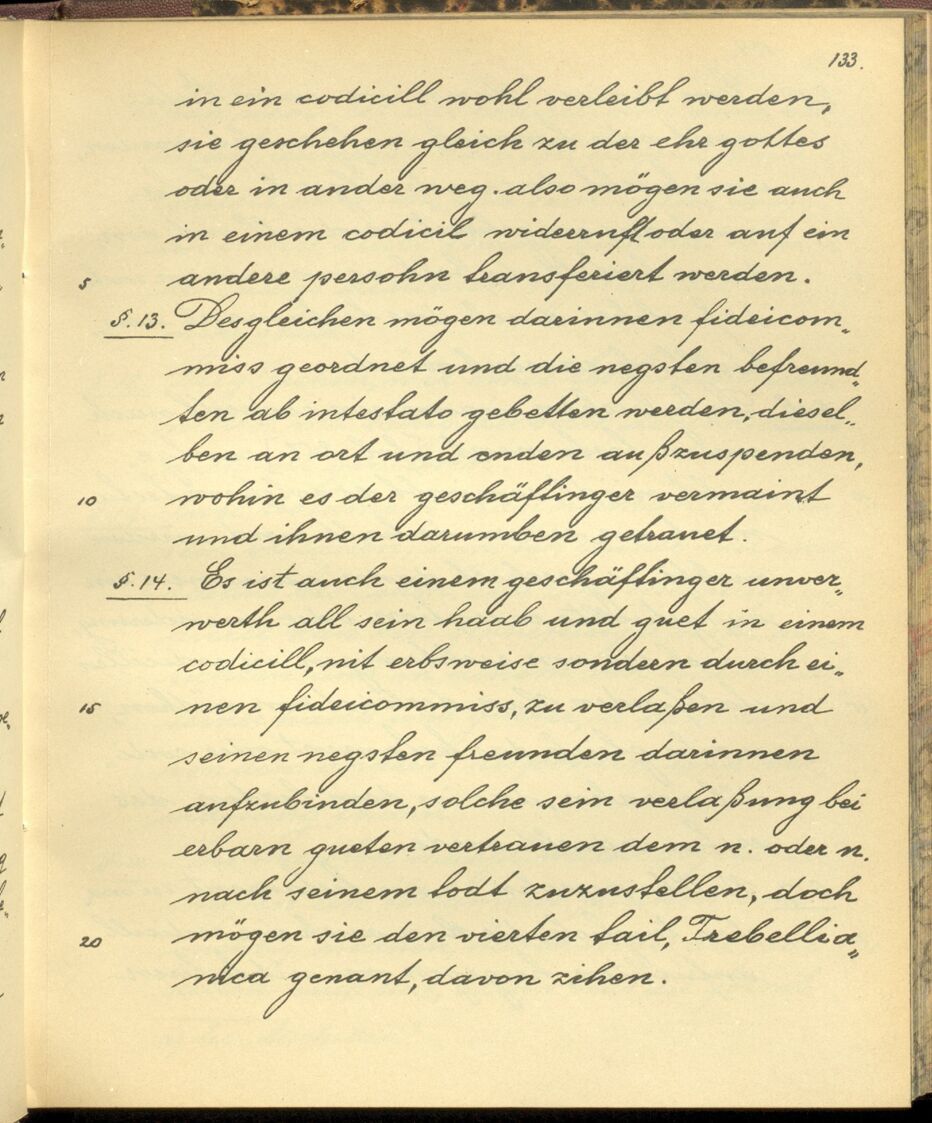 133.
in ein codicill wohl verleibt werden,
sie geschehen gleich zu der ehr gottes
oder in ander weg. also mögen sie auch
in einem codicil widerruft oder auf ein
5 andere persohn transferiert werden.
§. 13. Desgleichen mögen darinnen fideicom„
miss geordnet und die negsten befreund„
ten ab intestato gebetten werden, diesel„
ben an ort und enden außzuspenden,
10 wohin es der geschäftinger vermaint
und ihnen darumben getrauet.
§. 14. Es ist auch einem geschäftinger unver„
werth all sein haab und guet in einem
codicill, nit erbsweise sondern durch ei„
15 nen fideicommiss, zu verlaßen und
seinen negsten freunden darinnen
aufzubinden, solche sein verlaßung bei
erbarn gueten vertrauen dem n. oder n.
nach seinem todt zuzustellen, doch
20 mögen sie den vierten tail, Trebellia„
nica genant, davon zihen.